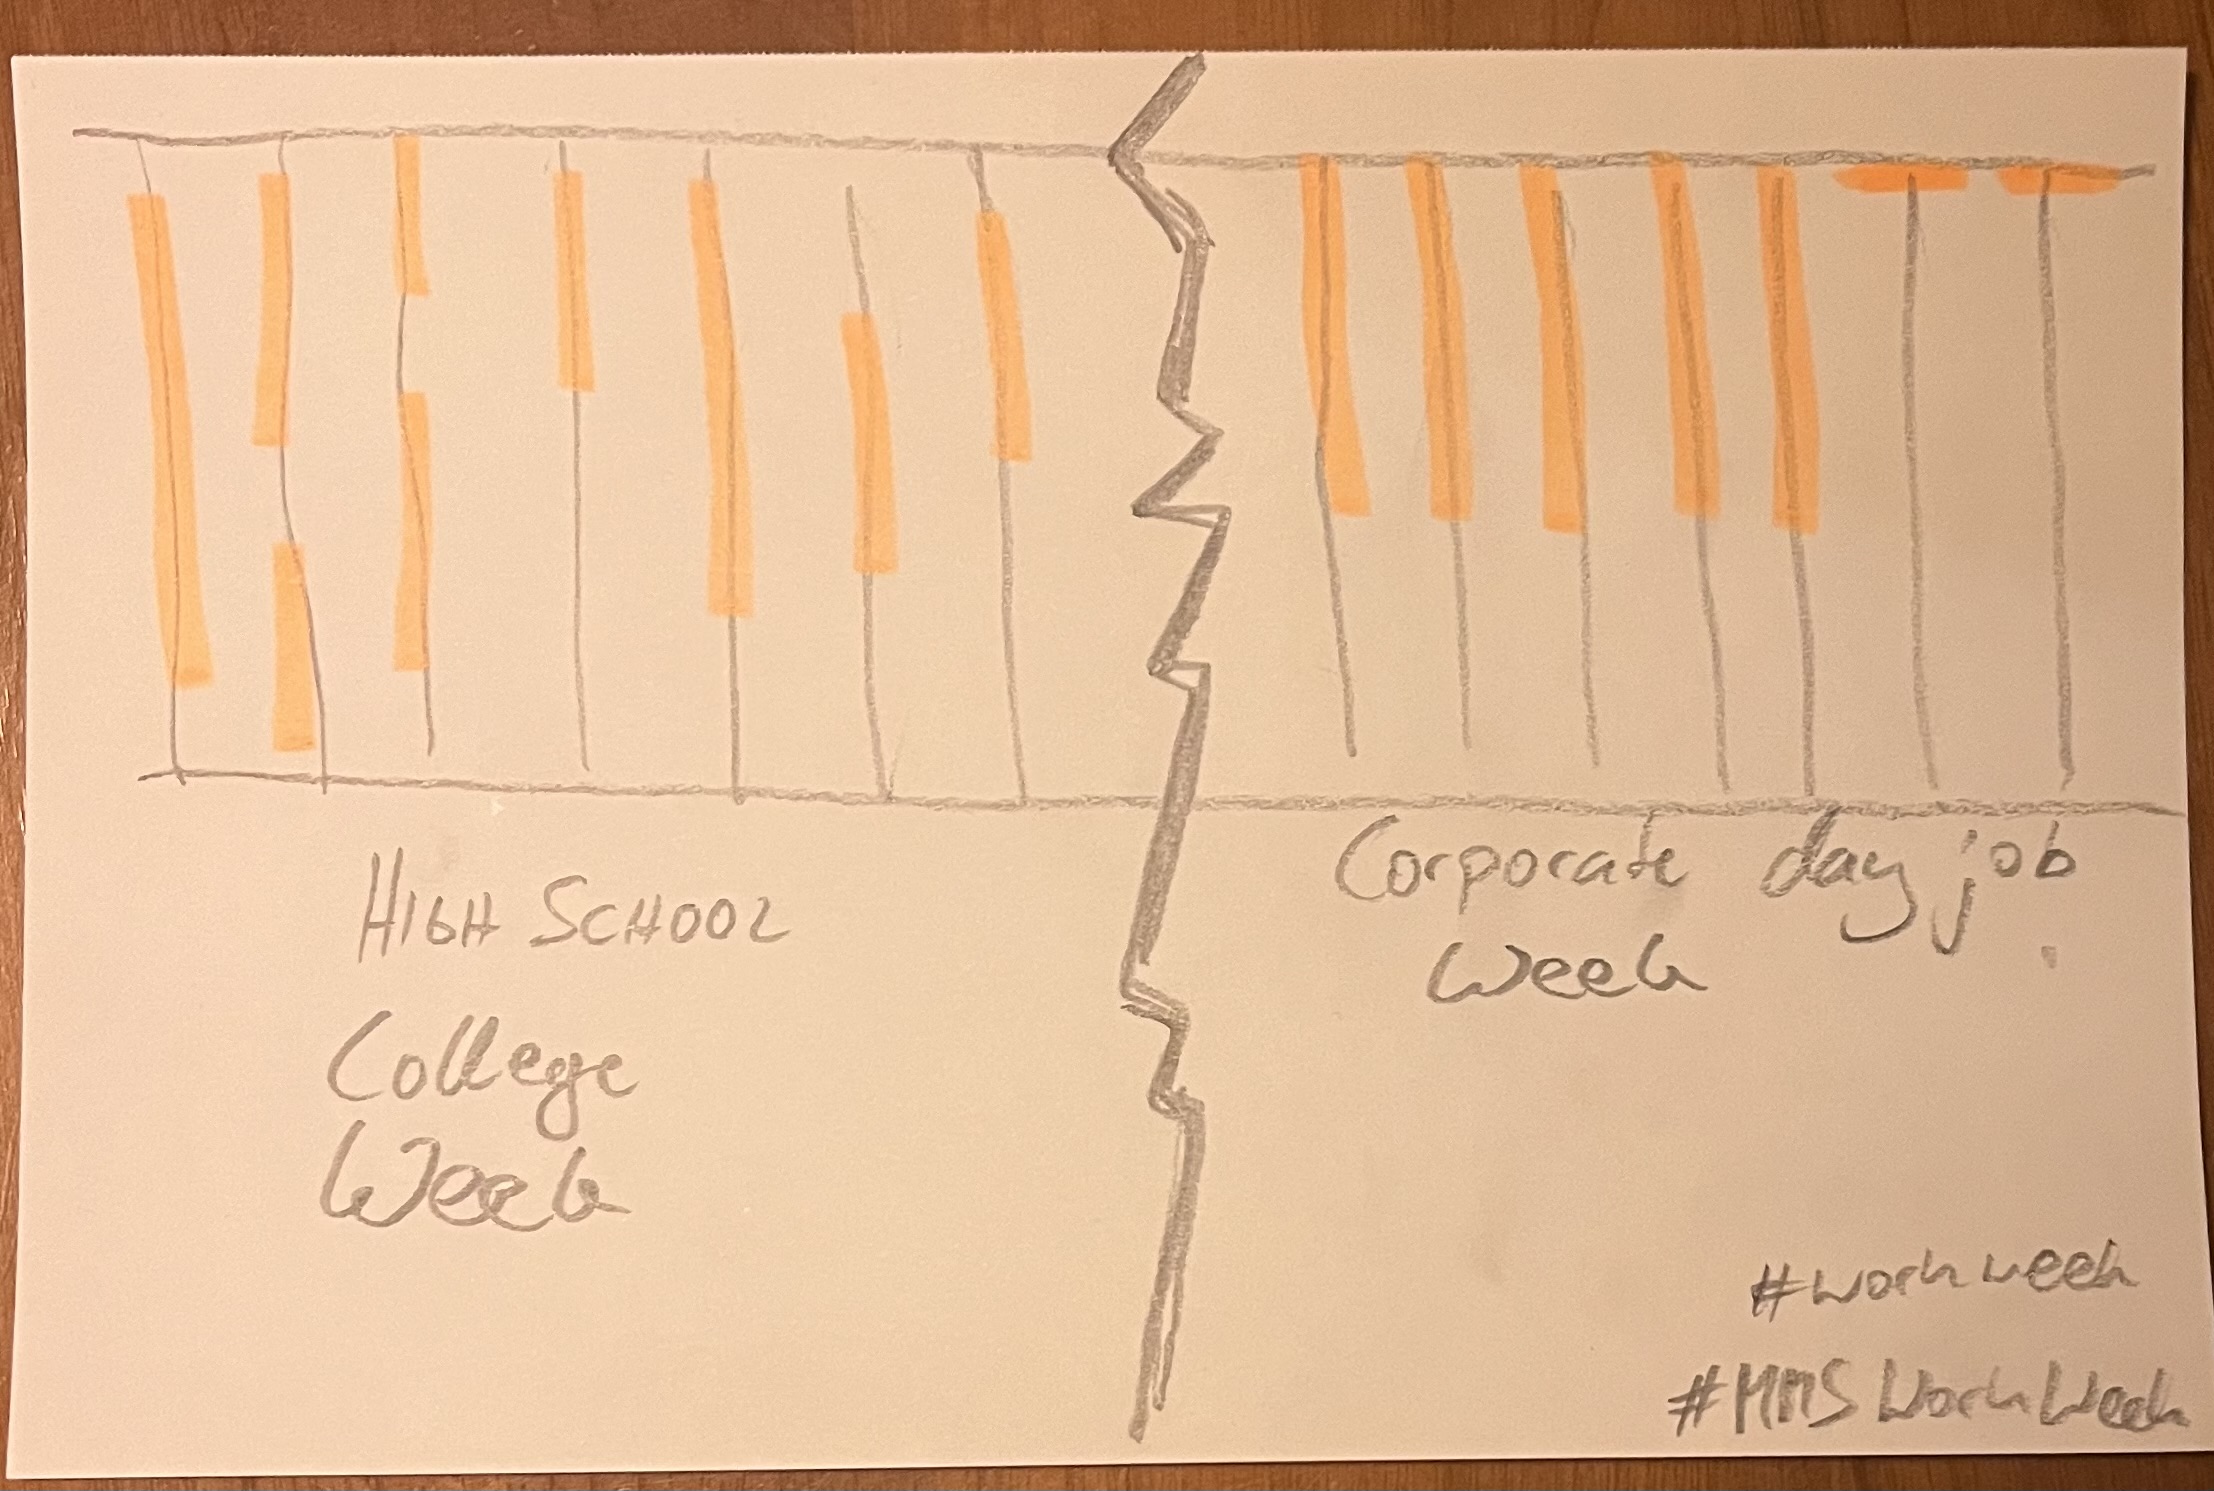 HIGH SCHOOL
College
Week
Corporate day job
Week
#workweek
#MMSWorkWeek